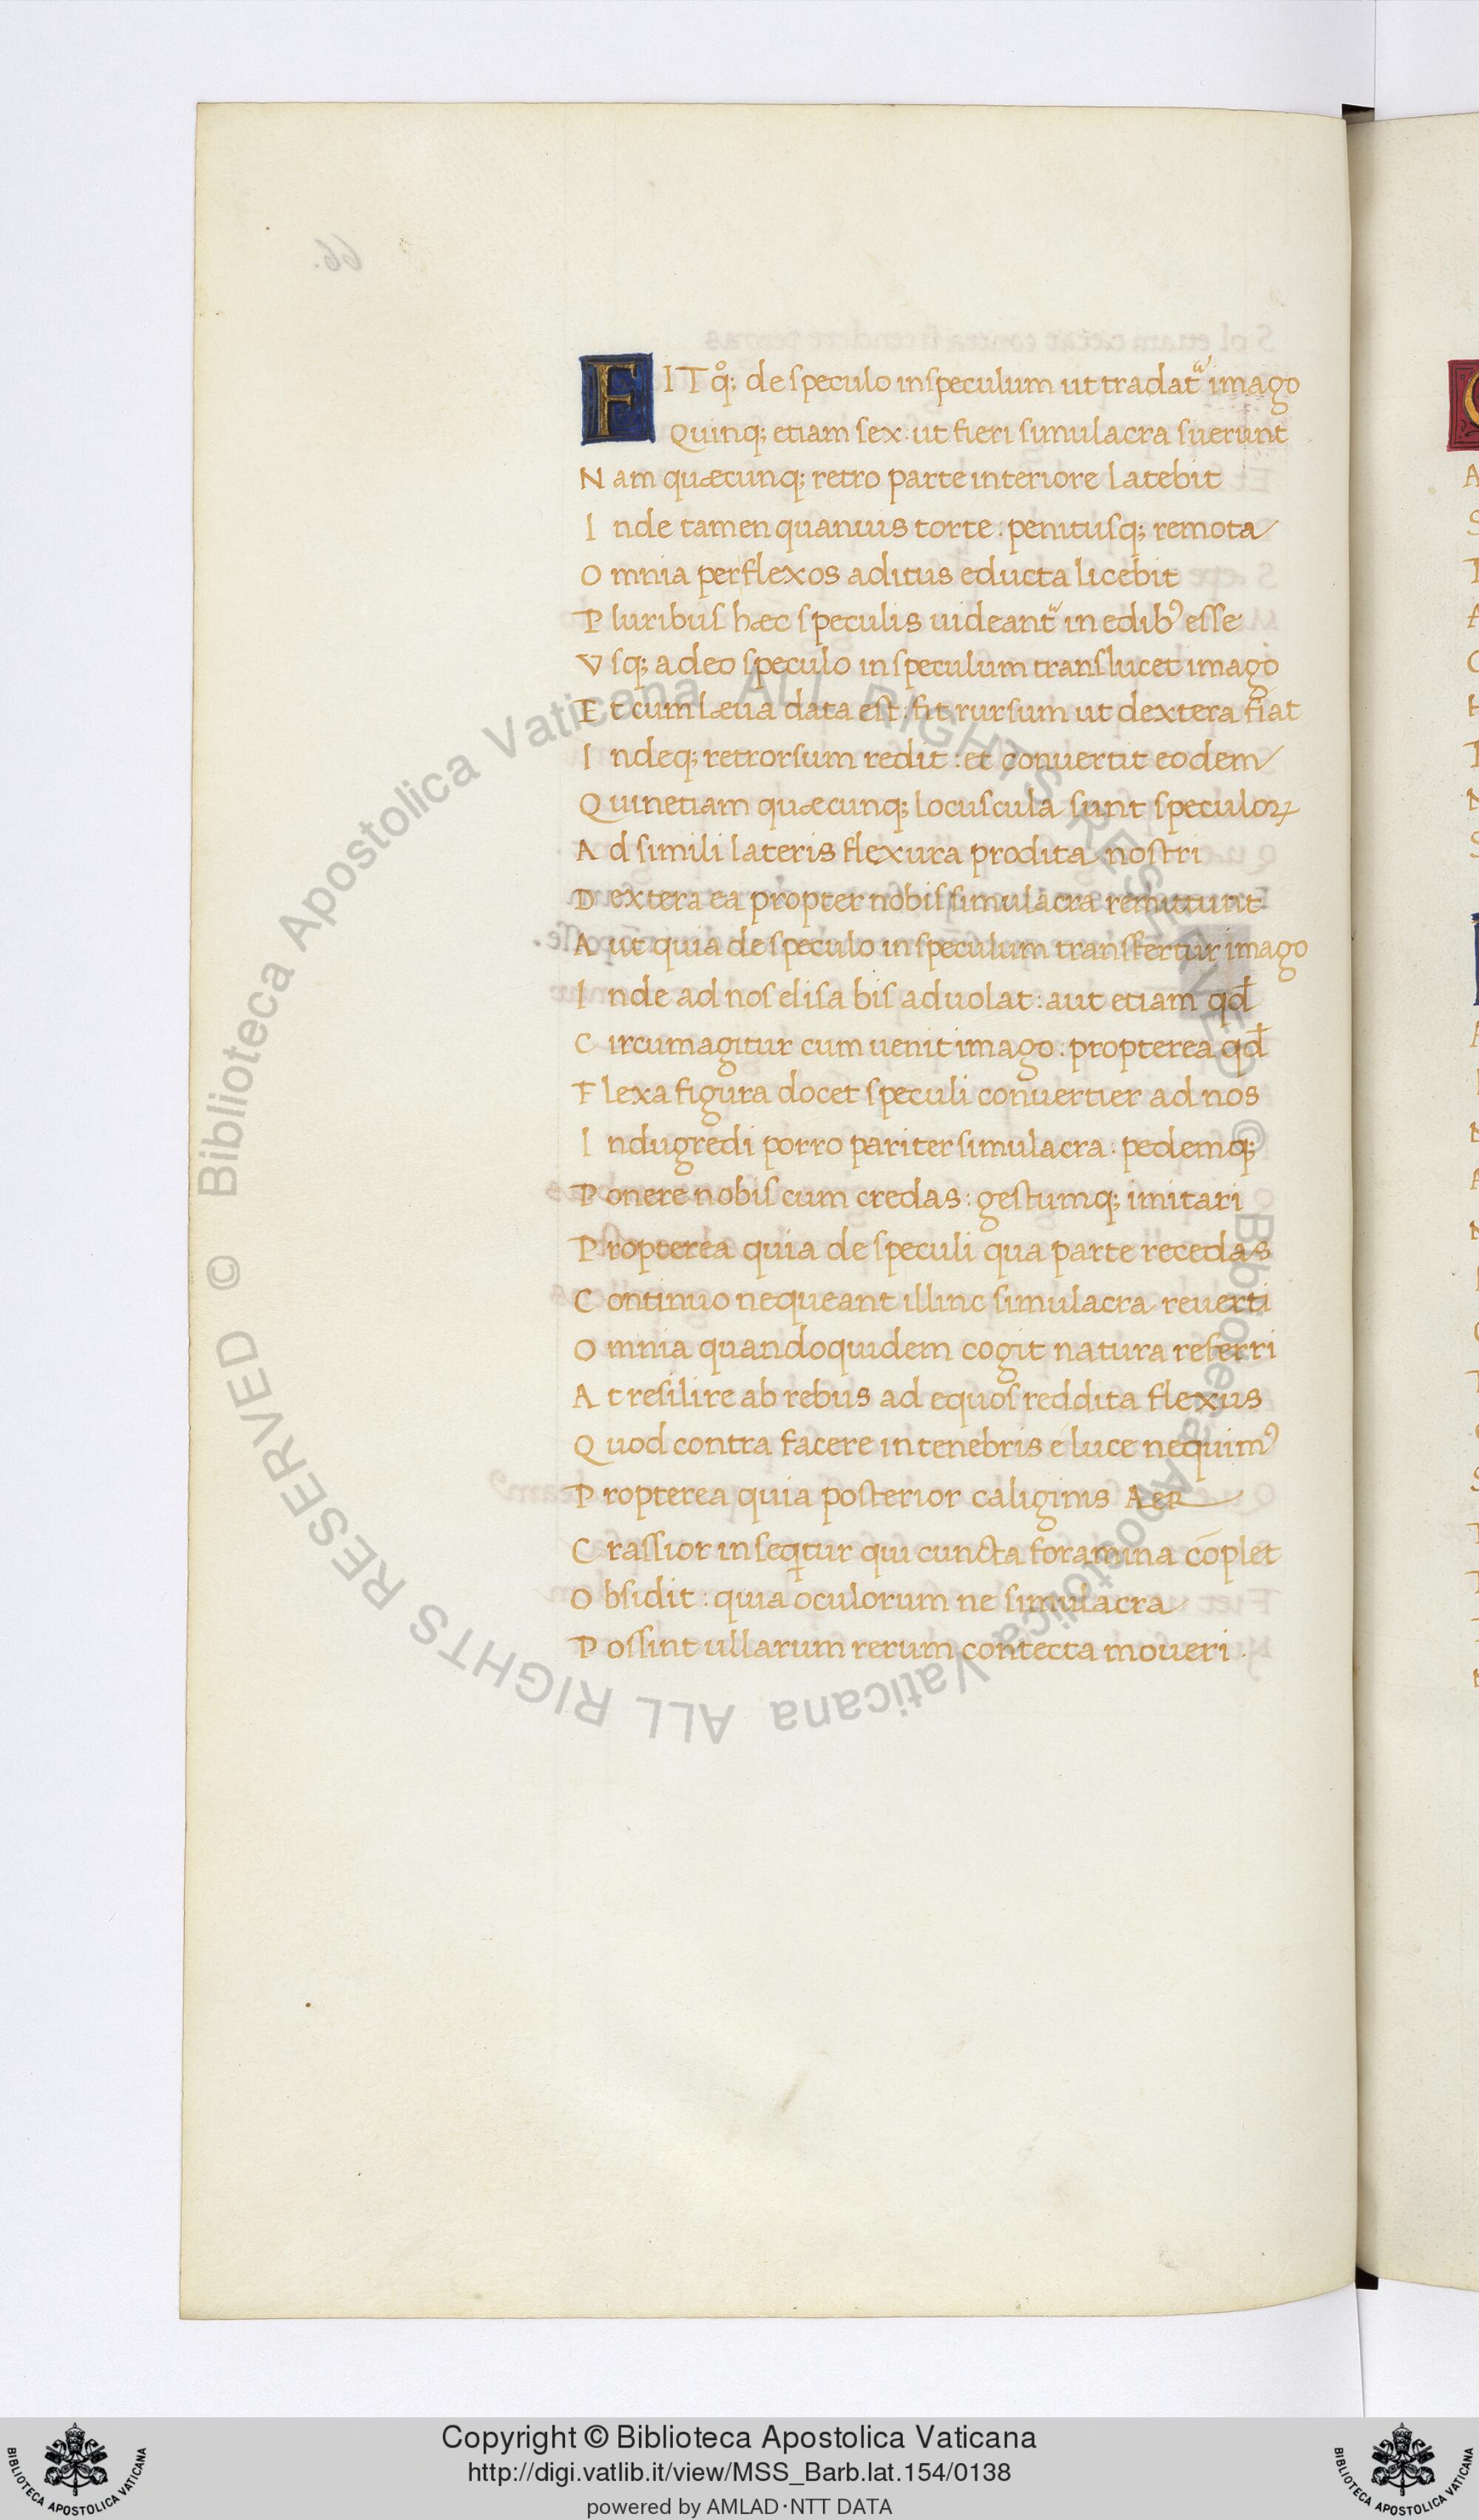 FIT qͦ; de speculo in speculum ut tradat᷑ imago
Quinq; etiam sex: ut fieri simulacra suerunt
Nam quæcunq; retro parte interiore latebit
Inde tamen quanuis torte: penitusq; remota
Omnia perflexos aditus educta licebit
Pluribus hæc speculis uideant᷑ in edibꝰ esse
Vsq; adeo speculo in speculum translucet imago
Et cum læua data est: fit rursum ut dextera fiat
Indeq; retrorsum redit: et conuertit eodem
Quinetiam quæcunq; locuscula sunt speculoꝝ
Ad simili lateris flexura prodita nostri
Dextera ea propter nobis simulacra remittunt
Aut quia de speculo in speculum transfertur imago
Inde ad nos elisa bis aduolat: aut etiam qđ
Circumagitur cum uenit imago: propterea qđ
Flexa figura docet speculi conuertier ad nos
Indugredi porro pariter simulacra: pedemq;
Ponere nobis cum credas: gestumq; imitari
Propterea quia de speculi qua parte recedas
Continuo nequeant illinc simulacra reuerti
Omnia quandoquidem cogit natura referri
At resilire ab rebus ad equos reddita flexus
Quod contra facere in tenebris e luce nequimꝰ
Propterea quia posterior caliginis AER
Crassior inseqͥtur qui cuncta foramina cōplet
Obsidit: quia oculorum ne simulacra
Possint ullarum rerum contecta moueri.
© Biblioteca Apostolica Vaticana ALL RIGHTS RESERVED © Biblioteca Apostolica Vaticana ALL RIGHTS RESERVED
Copyright © Biblioteca Apostolica Vaticana
http://digi.vatlib.it/view/MSS_Barb.lat.154/0138
powered by AMLAD·NTT DATA
BIBLIOTECA APOSTOLICA VATICANA
BIBLIOTECA APOSTOLICA VATICANA